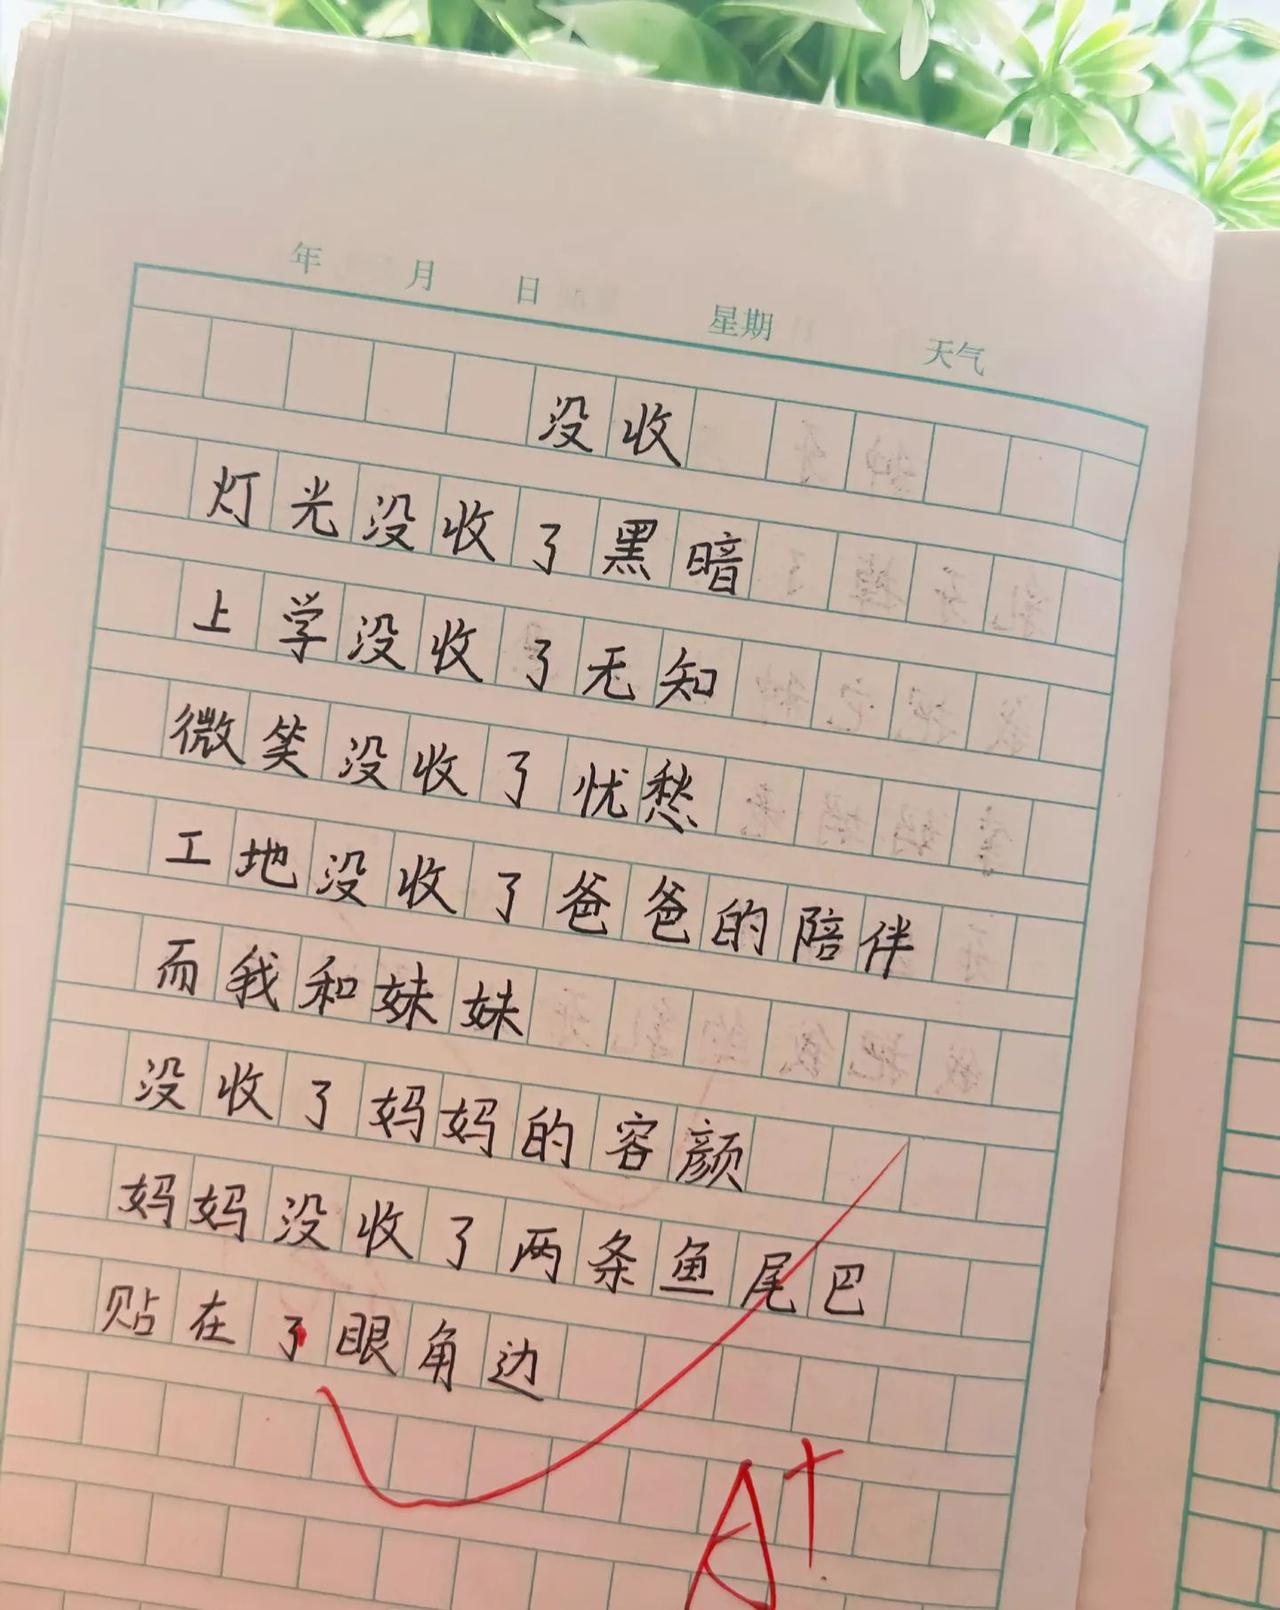 年 月 日 星期 天气
没收
灯光没收了黑暗
上学没收了无知
微笑没收了忧愁
工地没收了爸爸的陪伴
而我和妹妹
没收了妈妈的容颜
妈妈没收了两条鱼尾巴
贴在了眼角边
A+